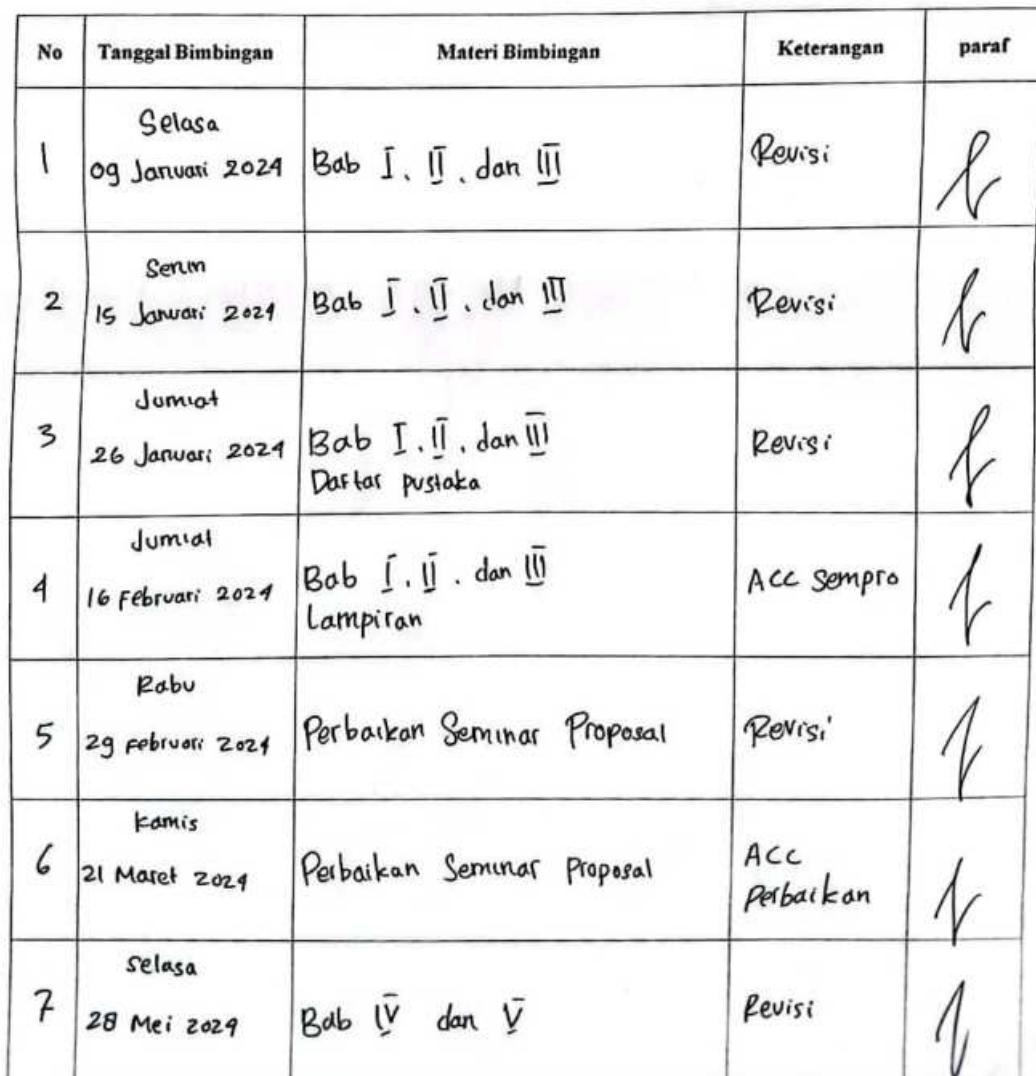 No Tanggal Bimbingan Materi Bimbingan Keterangan paraf
1 Selasa
09 Januari 2024 Bab I, II, dan III Revisi
2 Senin
15 Januari 2024 Bab I, II, dan III Revisi
3 Jumiat
26 Januari 2024 Bab I, II, dan III Revisi
Daftar pustaka
4 Jumiat
16 Februari 2024 Bab I, II, dan III ACC Sempro
Lampiran
5 Rabu
29 Februari 2024 Perbaikan Seminar Proposal Revisi
6 Kamis
21 Maret 2024 Perbaikan Seminar Proposal ACC
Perbaikan
7 Selasa
28 Mei 2024 Bab IV dan V Revisi